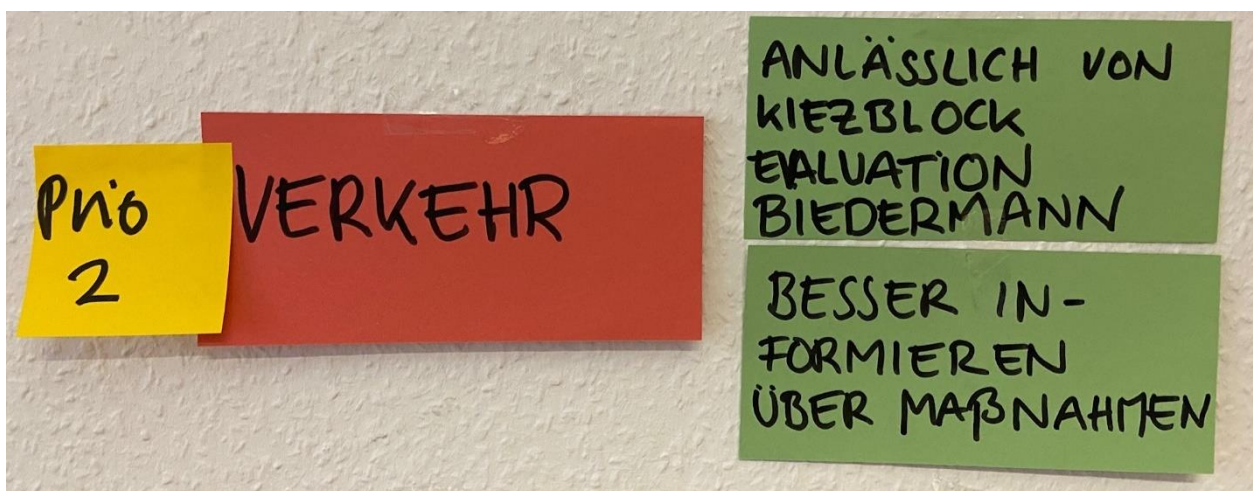 Prio
2
VERKEHR
ANLÄSSLICH VON
KIEZBLOCK
EVALUATION
BIEDERMANN
BESSER IN-
FORMIEREN
ÜBER MAßNAHMEN